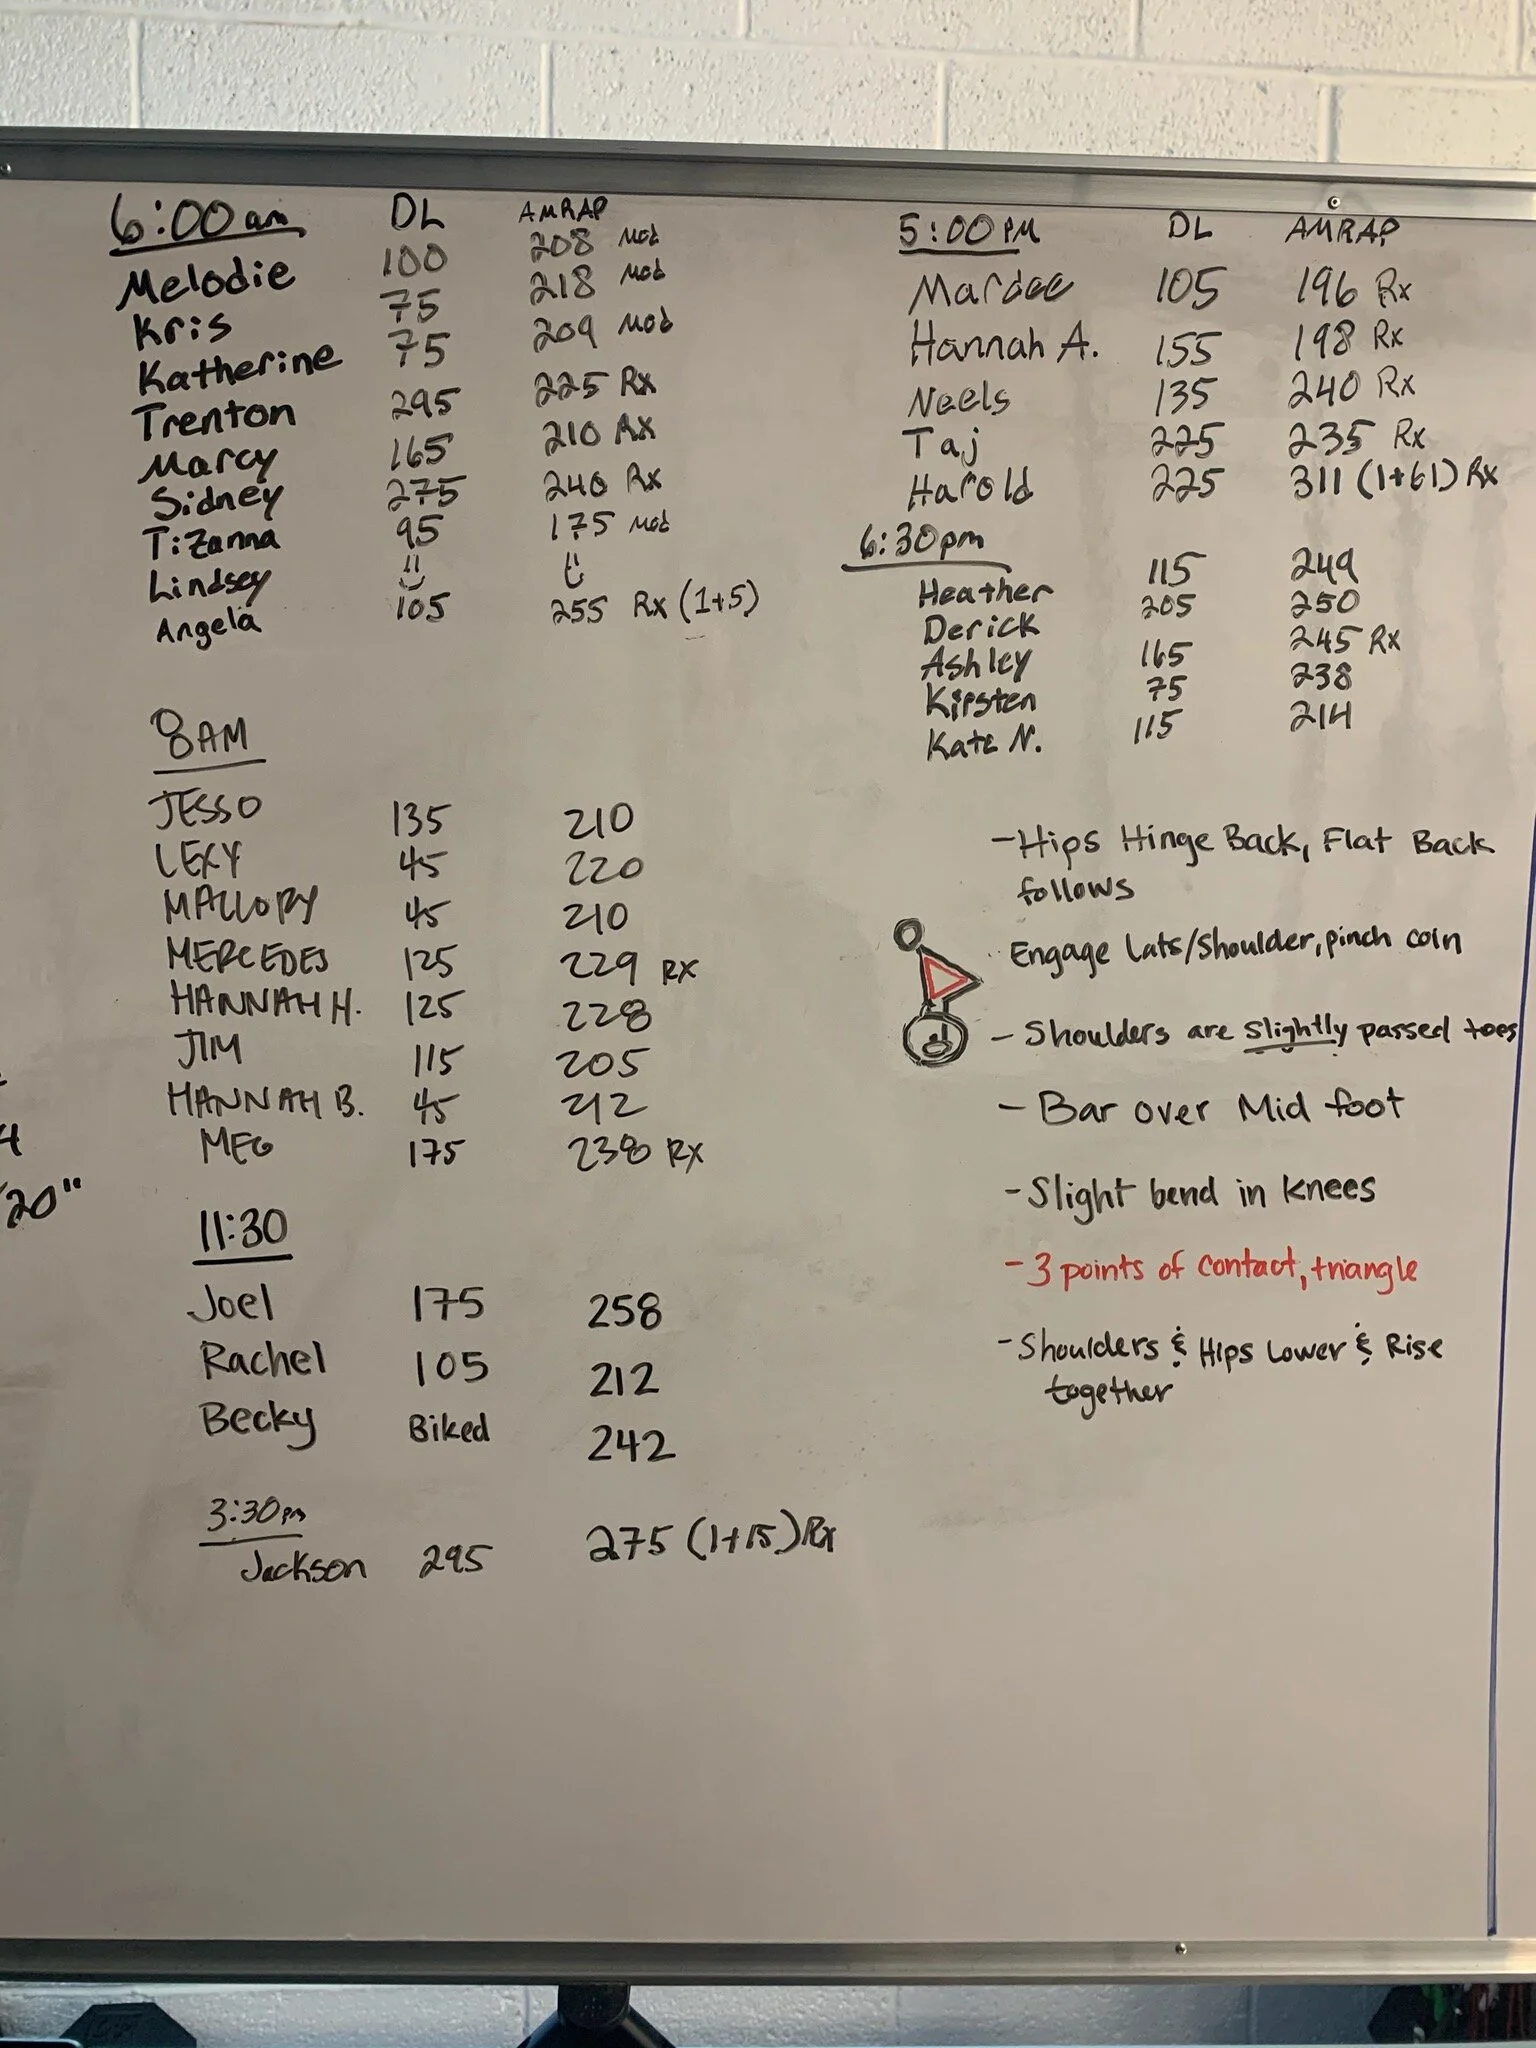 6:00 am DL AMRAP
Melodie 100 208 Mod
Kris 75 218 Mod
Katherine 75 209 Mod
Trenton 295 225 Rx
Marcy 165 210 Rx
Sidney 275 240 Rx
Tizanna 95 175 Mod
Lindsey
Angela 105 255 Rx (1+5)
8AM
JESSO 135 210
LEXY 45 220
MALLORY 45 210
MERCEDES 125 229 RX
HANNAH H. 125 228
JIM 115 205
HANNAH B. 45 212
MEG 175 238 RX
11:30
Joel 175 258
Rachel 105 212
Becky Biked 242
3:30pm
Jackson 295 275 (1+15) Rx
20"
5:00 PM DL AMRAP
Mardee 105 196 Rx
Hannah A. 155 198 Rx
Neels 135 240 Rx
Taj 225 235 Rx
Harold 225 311 (1+61) Rx
6:30pm
Heather 115 249
Derick 205 250
Ashley 165 245 Rx
Kirsten 75 238
Kate N. 115 214
- Hips Hinge Back, Flat Back
follows
Engage Lats/Shoulder, pinch coin
- Shoulders are slightly passed toes
- Bar over Mid foot
- Slight bend in knees
- 3 points of contact, triangle
- Shoulders & Hips Lower & Rise
together